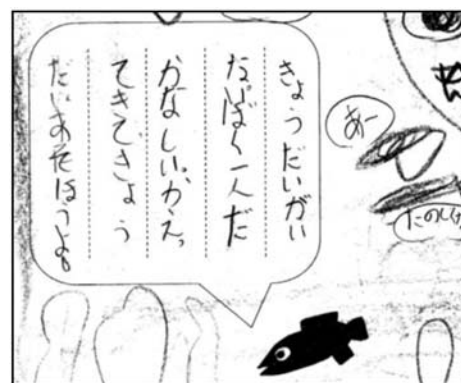 きょうだいがい
ないぼく一人だ
かなしい。かえっ
てきてきょう
だいあそぼうよ。
あー